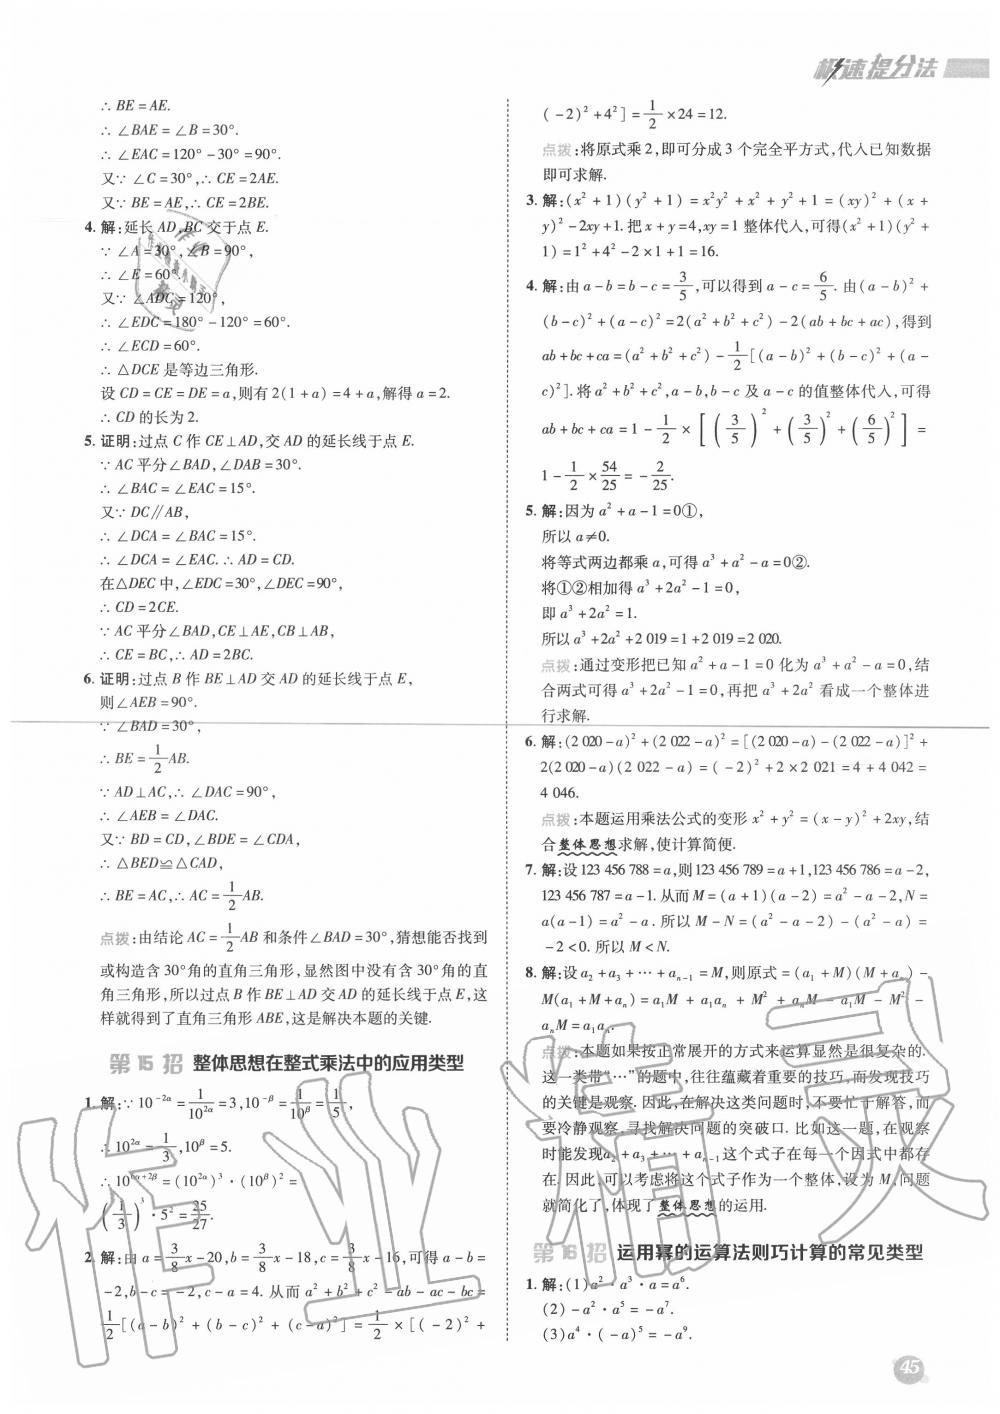 极速提分法
∴ BE=AE.
∴ ∠BAE=∠B=30°.
∴ ∠EAC=120°-30°=90°.
又∵ ∠C=30°,∴ CE=2AE.
又∵ BE=AE,∴ CE=2BE.
4. 解:延长 AD,BC 交于点 E.
∵ ∠A=30°,∠B=90°,
∴ ∠E=60°.
又∵ ∠ADC=120°,
∴ ∠EDC=180°-120°=60°.
∴ ∠ECD=60°.
∴ △DCE 是等边三角形.
设 CD=CE=DE=a,则有 2(1+a)=4+a,解得 a=2.
∴ CD 的长为 2.
5. 证明:过点 C 作 CE⊥AD,交 AD 的延长线于点 E.
∵ AC 平分∠BAD,∠DAB=30°.
∴ ∠BAC=∠EAC=15°.
又∵ DC∥AB,
∴ ∠DCA=∠BAC=15°.
∴ ∠DCA=∠EAC.∴ AD=CD.
在△DEC 中,∠EDC=30°,∠DEC=90°,
∴ CD=2CE.
∵ AC 平分∠BAD,CE⊥AE,CB⊥AB,
∴ CE=BC,∴ AD=2BC.
6. 证明:过点 B 作 BE⊥AD 交 AD 的延长线于点 E,
则∠AEB=90°.
∵ ∠BAD=30°,
∴ BE=1/2AB.
∵ AD⊥AC,∴ ∠DAC=90°,
∴ ∠AEB=∠DAC.
又∵ BD=CD,∠BDE=∠CDA,
∴ △BED≌△CAD,
∴ BE=AC,∴ AC=1/2AB.
点拨:由结论 AC=1/2AB 和条件∠BAD=30°,猜想能否找到
或构造含 30°角的直角三角形,显然图中没有含 30°角的直
角三角形,所以过点 B 作 BE⊥AD 交 AD 的延长线于点 E,这
样就得到了直角三角形 ABE,这是解决本题的关键.
第 15 招 整体思想在整式乘法中的应用类型
1. 解:∵ 10⁻²ᵅ=1/10²ᵅ=3,10⁻ᵝ=1/10ᵝ=1/5,
∴ 10²ᵅ=1/3,10ᵝ=5.
∴ 10⁶ᵅ⁺²ᵝ=(10²ᵅ)³·(10ᵝ)²=
(1/3)³·5²=25/27.
2. 解:由 a=3/8x-20,b=3/8x-18,c=3/8x-16,可得 a-b=
-2,b-c=-2,c-a=4. 从而 a²+b²+c²-ab-ac-bc=
1/2[(a-b)²+(b-c)²+(c-a)²]=1/2×[(-2)²+
(-2)²+4²]=1/2×24=12.
点拨:将原式乘 2,即可分成 3 个完全平方式,代入已知数据
即可求解.
3. 解:(x²+1)(y²+1)=x²y²+x²+y²+1=(xy)²+(x+
y)²-2xy+1.把 x+y=4,xy=1 整体代入,可得(x²+1)(y²+
1)=1²+4²-2×1+1=16.
4. 解:由 a-b=b-c=3/5,可以得到 a-c=6/5. 由(a-b)²+
(b-c)²+(a-c)²=2(a²+b²+c²)-2(ab+bc+ac),得到
ab+bc+ca=(a²+b²+c²)-1/2[(a-b)²+(b-c)²+(a-
c)²].将 a²+b²+c²,a-b,b-c 及 a-c 的值整体代入,可得
ab+bc+ca=1-1/2×[(3/5)²+(3/5)²+(6/5)²]=
1-1/2×54/25=-2/25.
5. 解:因为 a²+a-1=0①,
所以 a≠0.
将等式两边都乘 a,可得 a³+a²-a=0②.
将①②相加得 a³+2a²-1=0,
即 a³+2a²=1.
所以 a³+2a²+2 019=1+2 019=2 020.
点拨:通过变形把已知 a²+a-1=0 化为 a³+a²-a=0,结
合两式可得 a³+2a²-1=0,再把 a³+2a² 看成一个整体进
行求解.
6. 解:(2 020-a)²+(2 022-a)²=[(2 020-a)-(2 022-a)]²+
2(2 020-a)(2 022-a)=(-2)²+2×2 021=4+4 042=
4 046.
点拨:本题运用乘法公式的变形 x²+y²=(x-y)²+2xy,结
合整体思想求解,使计算简便.
7. 解:设 123 456 788=a,则 123 456 789=a+1,123 456 786=a-2,
123 456 787=a-1.从而 M=(a+1)(a-2)=a²-a-2,N=
a(a-1)=a²-a. 所以 M-N=(a²-a-2)-(a²-a)=
-2<0.所以 M<N.
8. 解:设 a₂+a₃+…+aₙ₋₁=M,则原式=(a₁+M)(M+aₙ)-
M(a₁+M+aₙ)=a₁M+a₁aₙ+M²+aₙM-a₁M-M²-
aₙM=a₁aₙ.
点拨:本题如果按正常展开的方式来运算显然是很复杂的.
这一类带“…”的题中,往往蕴藏着重要的技巧,而发现技巧
的关键是观察. 因此,在解决这类问题时,不要忙于解答,而
要冷静观察,寻找解决问题的突破口. 比如这一题,在观察
时能发现a₂+a₃+…+aₙ₋₁这个式子在每一个因式中都存
在. 因此,可以考虑将这个式子作为一个整体,设为 M,问题
就简化了,体现了整体思想的运用.
第 16 招 运用幂的运算法则巧计算的常见类型
1. 解:(1)a²·a³·a=a⁶.
(2)-a²·a⁵=-a⁷.
(3)a⁴·(-a)⁵=-a⁹.
45
作业精灵